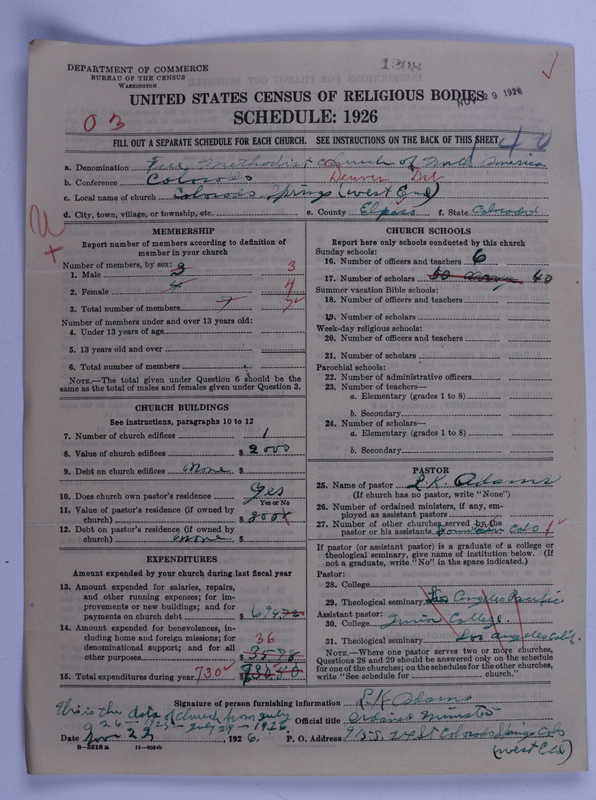 DEPARTMENT OF COMMERCE
BUREAU OF THE CENSUS
WASHINGTON
NOV 29 1926
UNITED STATES CENSUS OF RELIGIOUS BODIES
SCHEDULE: 1926
03
FILL OUT A SEPARATE SCHEDULE FOR EACH CHURCH. SEE INSTRUCTIONS ON THE BACK OF THIS SHEET
a. Denomination Free Methodist Church of North America
b. Conference Colorado Denver Dist
c. Local name of church Colorado Springs (West End)
d. City, town, village, or township, etc. e. County El paso f. State Colorado
MEMBERSHIP
Report number of members according to definition of
member in your church
Number of members, by sex:
1. Male 3 3
2. Female 4 4
3. Total number of members 7 7
Number of members under and over 13 years old:
4. Under 13 years of age
5. 13 years old and over
6. Total number of members
NOTE.—The total given under Question 6 should be the
same as the total of males and females given under Question 3.
CHURCH BUILDINGS
See instructions, paragraphs 10 to 12
7. Number of church edifices 1
8. Value of church edifices $ 2000
9. Debt on church edifices None $
10. Does church own pastor's residence Yes
Yes or No
11. Value of pastor's residence (if owned by
church) $ 800
12. Debt on pastor's residence (if owned by
church) None $
EXPENDITURES
Amount expended by your church during last fiscal year
13. Amount expended for salaries, repairs,
and other running expenses; for im-
provements or new buildings; and for
payments on church debt $ 694
14. Amount expended for benevolences, in-
cluding home and foreign missions; for
denominational support; and for all
other purposes 36 $ 35.78
15. Total expenditures during year 730 $
CHURCH SCHOOLS
Report here only schools conducted by this church
Sunday schools:
16. Number of officers and teachers 6
17. Number of scholars 40
Summer vacation Bible schools:
18. Number of officers and teachers
19. Number of scholars
Week-day religious schools:
20. Number of officers and teachers
21. Number of scholars
Parochial schools:
22. Number of administrative officers
23. Number of teachers—
a. Elementary (grades 1 to 8)
b. Secondary
24. Number of scholars—
a. Elementary (grades 1 to 8)
b. Secondary
PASTOR
25. Name of pastor L.K. Adams
(If church has no pastor, write "None")
26. Number of ordained ministers, if any, em-
ployed as assistant pastors
27. Number of other churches served by the
pastor or his assistants Colo 1
If pastor (or assistant pastor) is a graduate of a college or
theological seminary, give name of institution below. (If
not a graduate, write "No" in the space indicated.)
Pastor:
28. College
29. Theological seminary Los Angeles Pacific
Assistant pastor:
30. College Junior College.
31. Theological seminary Los Angeles Calif.
NOTE.—Where one pastor serves two or more churches,
Questions 28 and 29 should be answered only on the schedule
for one of the churches; on the schedules for the other churches,
write "See schedule for church."
Signature of person furnishing information L.K. Adams
This is the data of church from July
26-1925-July 29-1926.
Official title Ordained Minister
Date Nov 23 1926. P. O. Address 915 S. 24 St Colorado Springs Colo
(West End)
8—5518a 11—9024b